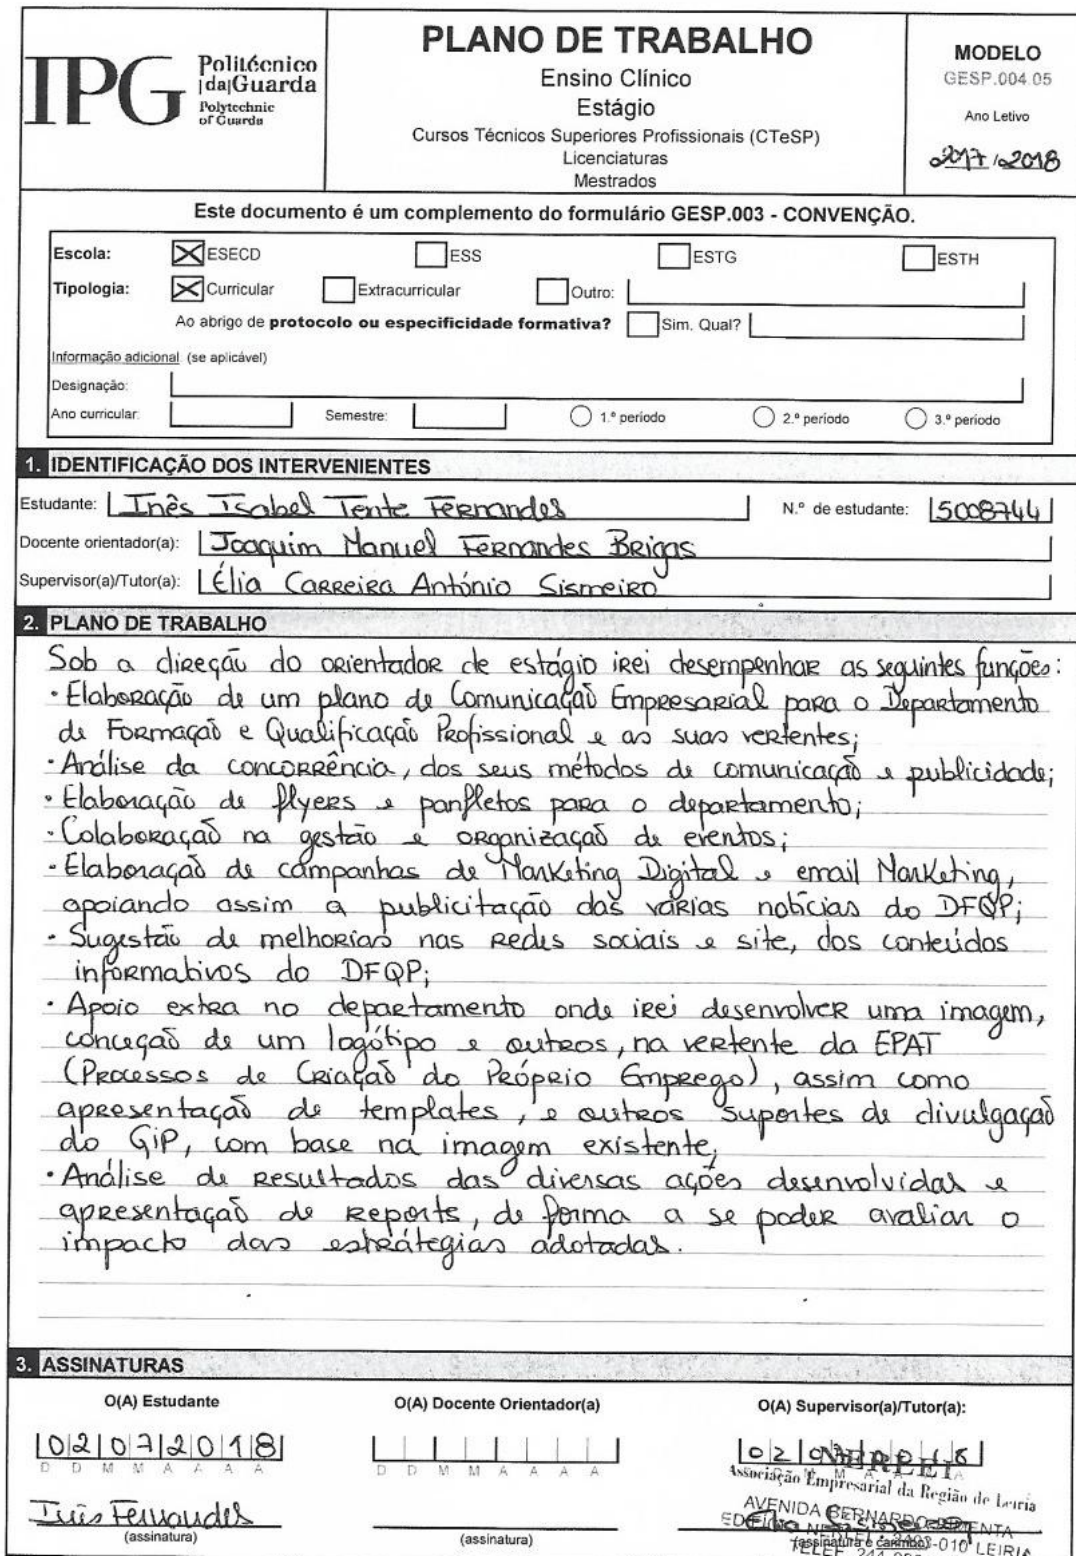 IPG Politécnico
|da|Guarda
Polytechnic
of Guarda
PLANO DE TRABALHO
Ensino Clínico
Estágio
Cursos Técnicos Superiores Profissionais (CTeSP)
Licenciaturas
Mestrados
MODELO
GESP.004.05
Ano Letivo
2017/2018
Este documento é um complemento do formulário GESP.003 - CONVENÇÃO.
Escola: ESECD ESS ESTG ESTH
Tipologia: Curricular Extracurricular Outro:
Ao abrigo de protocolo ou especificidade formativa? Sim. Qual?
Informação adicional (se aplicável)
Designação:
Ano curricular: Semestre: 1.º período 2.º período 3.º período
1. IDENTIFICAÇÃO DOS INTERVENIENTES
Estudante: Inês Isabel Tente Fernandes N.º de estudante: 5008744
Docente orientador(a): Joaquim Manuel Fernandes Brigas
Supervisor(a)/Tutor(a): Élia Carreira António Sismeiro
2. PLANO DE TRABALHO
Sob a direção do orientador de estágio irei desempenhar as seguintes funções:
· Elaboração de um plano de Comunicação Empresarial para o Departamento
de Formação e Qualificação Profissional e as suas vertentes;
· Análise da concorrência, dos seus métodos de comunicação e publicidade;
· Elaboração de flyers e panfletos para o departamento;
· Colaboração na gestão e organização de eventos;
· Elaboração de campanhas de Marketing Digital e email Marketing,
apoiando assim a publicitação das várias notícias do DFQP;
· Sugestão de melhorias nas redes sociais e site, dos conteúdos
informativos do DFQP;
· Apoio extra no departamento onde irei desenvolver uma imagem,
conceção de um logótipo e outros, na vertente da EPAT
(Processos de Criação do Próprio Emprego), assim como
apresentação de templates, e outros suportes de divulgação
do GiP, com base na imagem existente;
· Análise de resultados das diversas ações desenvolvidas e
apresentação de reports, de forma a se poder avaliar o
impacto das estratégias adotadas.
3. ASSINATURAS
O(A) Estudante O(A) Docente Orientador(a) O(A) Supervisor(a)/Tutor(a):
02072018
D D M M A A A A D D M M A A A A
NERLEI
Associação Empresarial da Região de Leiria
Inês Fernandes
AVENIDA BERNARDO PIMENTA
(assinatura) (assinatura) (assinatura e carimbo)
LEIRIA
TELEF. 244